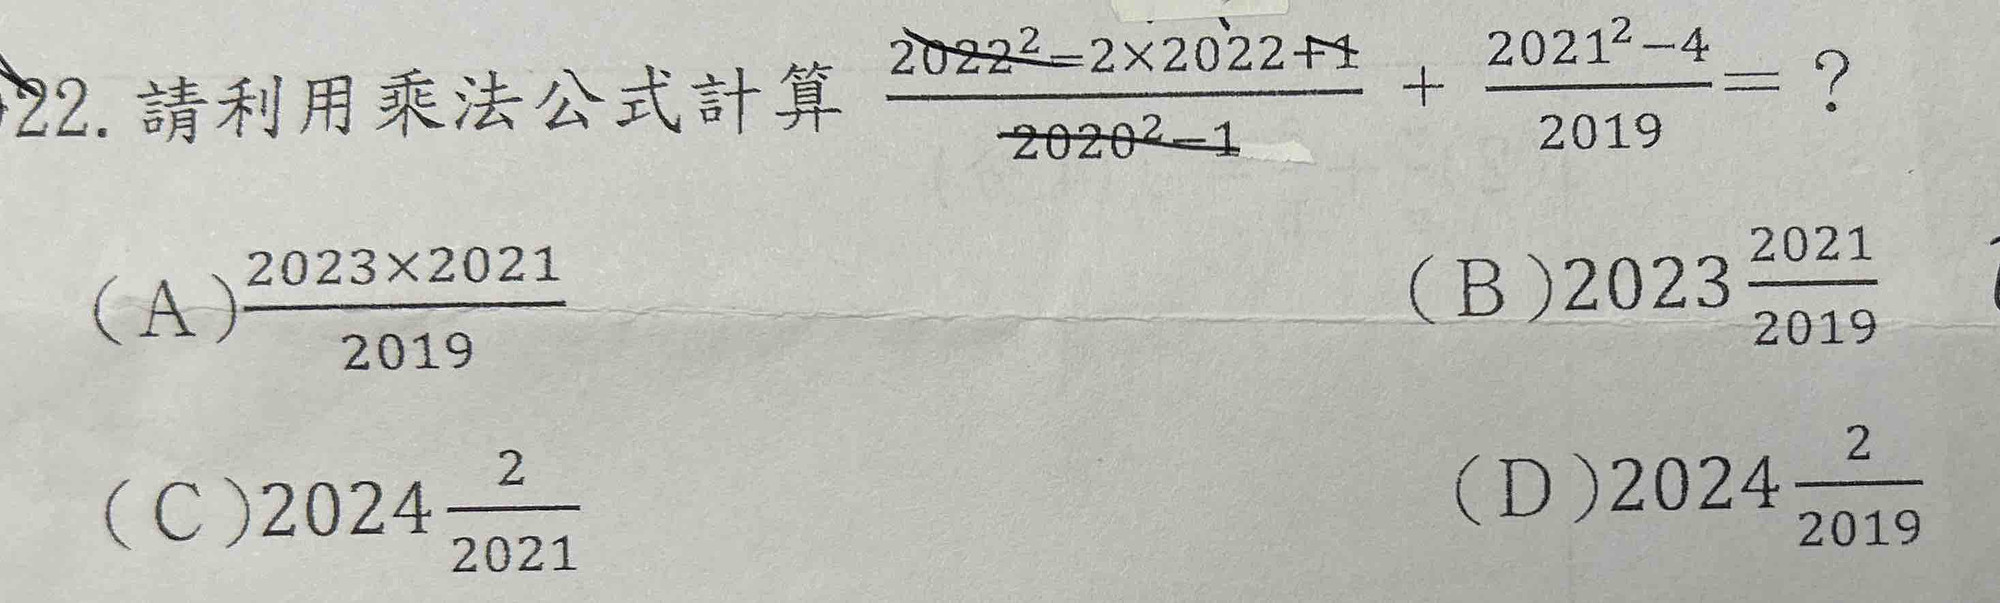 22. 請利用乘法公式計算 \frac{2022²-2×2022+1}{2020²-1} + \frac{2021²-4}{2019} = ?
(A) \frac{2023×2021}{2019} (B) 2023\frac{2021}{2019}
(C) 2024\frac{2}{2021} (D) 2024\frac{2}{2019}